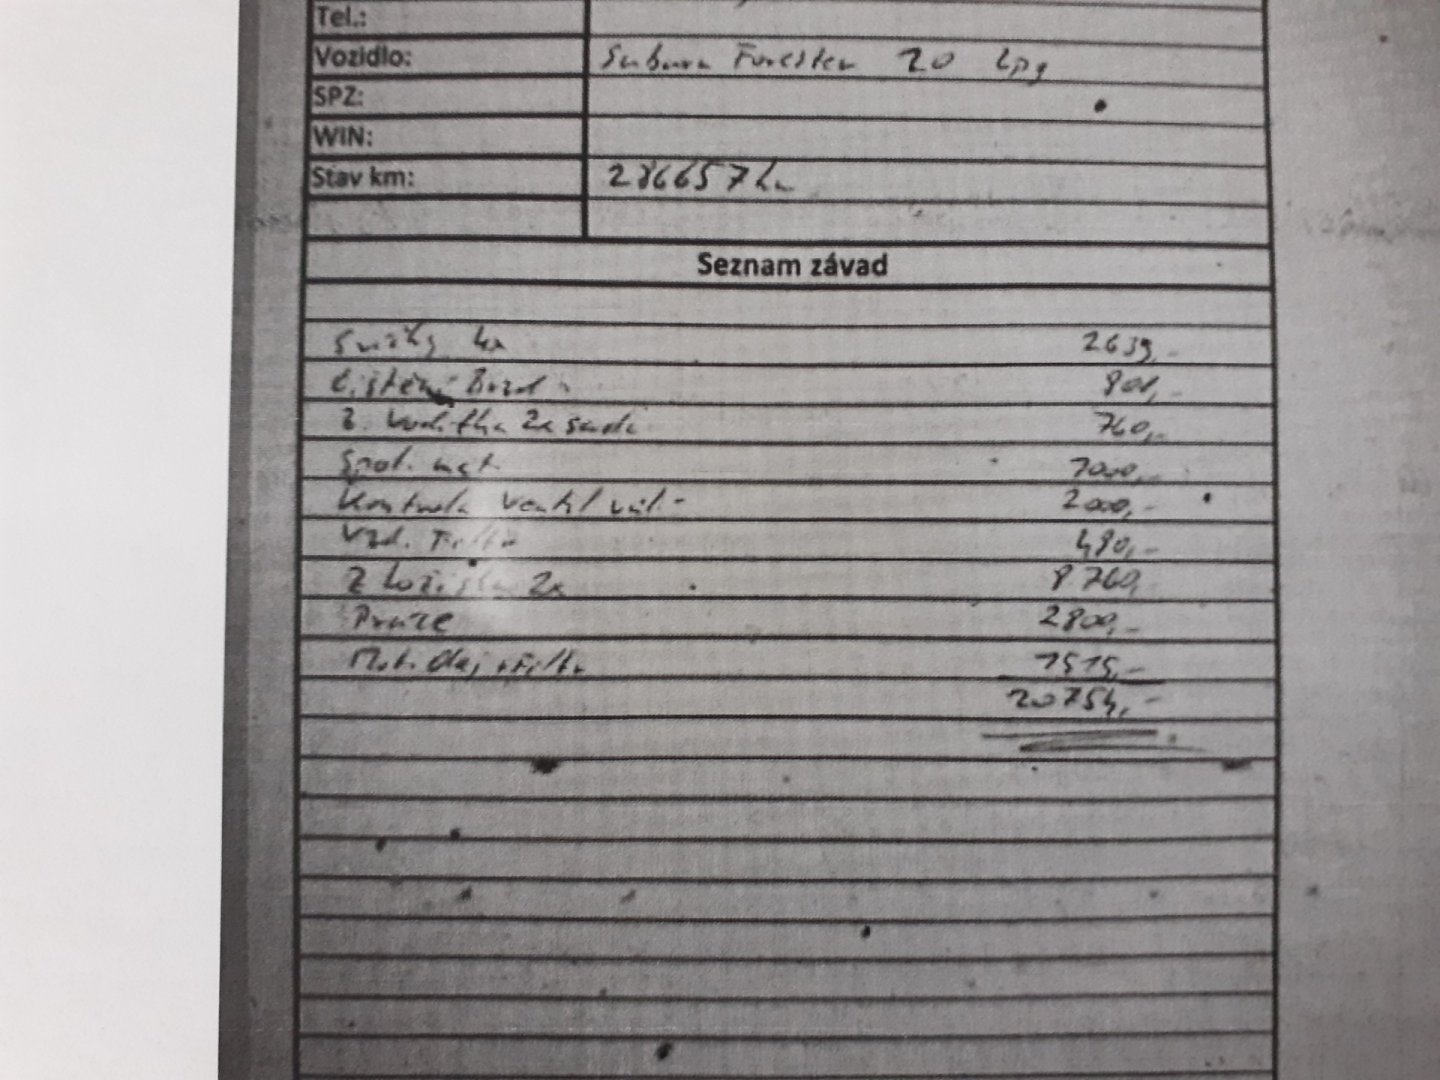 Tel.:
Vozidlo: Subaru Forester 20 Lpg
SPZ:
WIN:
Stav km: 286657 km
Seznam závad
Svíčky 4x 2639,-
čištění Brzd 800,-
z. vodítka 2x sada 760,-
Spot. mat. 1000,-
Kontrola ventil vůlí 2000,-
Vzd. Filtr 480,-
Z Ložiska 2x 8760,-
Práce 2800,-
Mot. Olej + Filtr 1515,-
20754,-